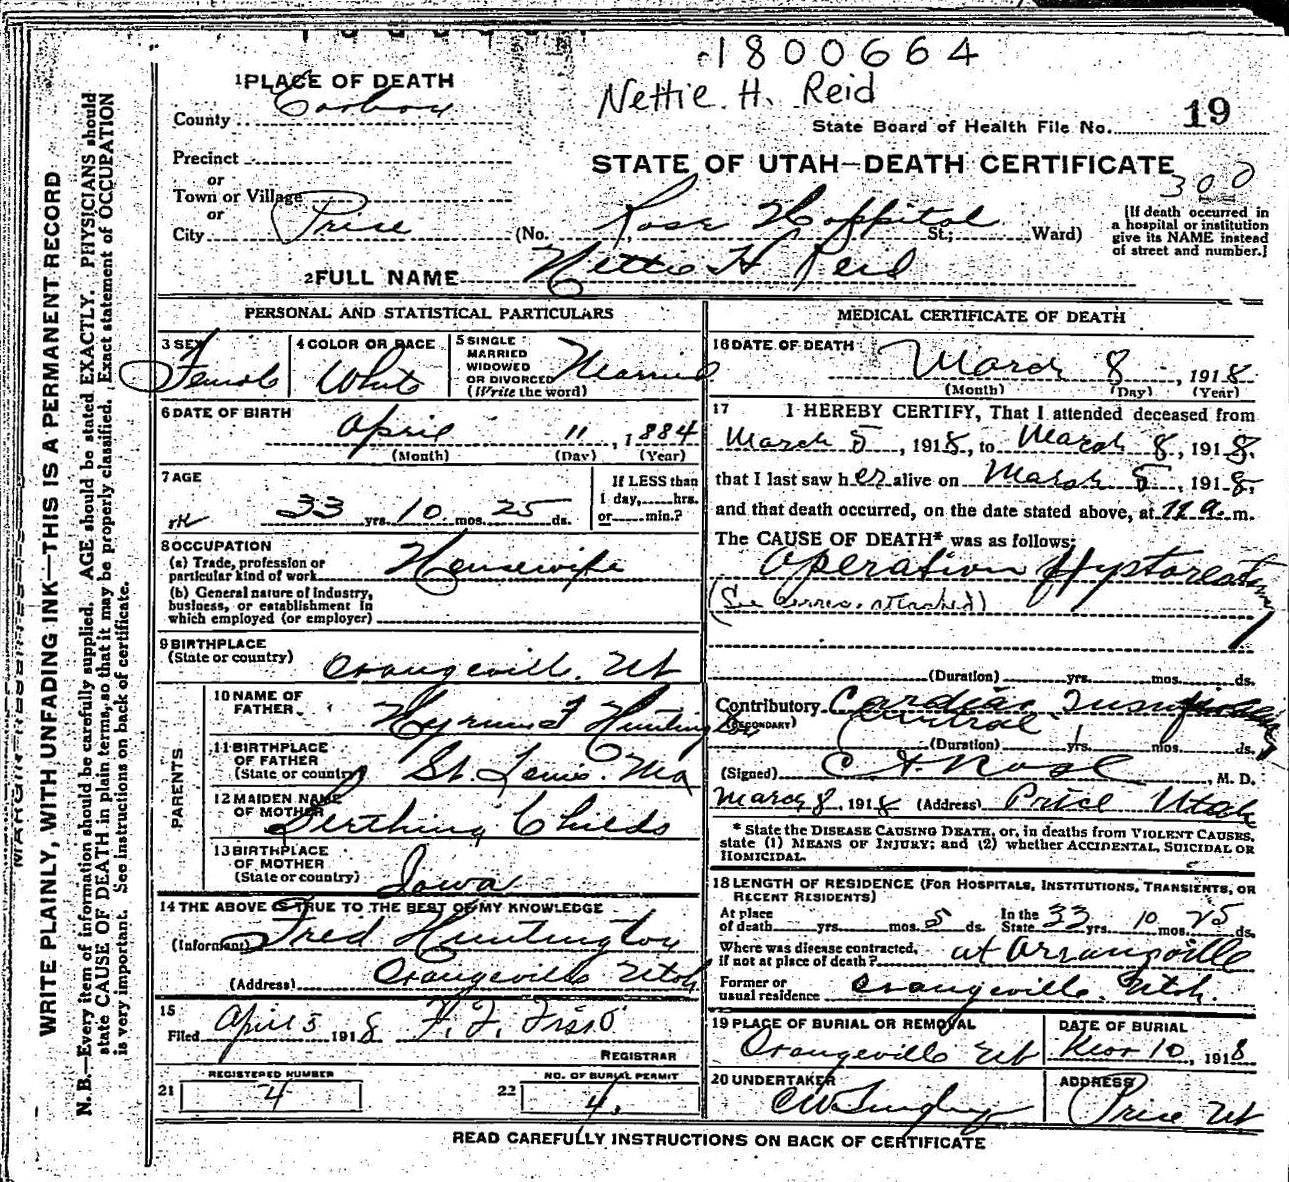 1800664
Nettie H. Reid
19
State Board of Health File No.
STATE OF UTAH—DEATH CERTIFICATE
300
1 PLACE OF DEATH
County Carbon
Precinct
or
Town or Village
or
City Price
(No. Rose Hospital St.; Ward)
[If death occurred in
a hospital or institution
give its NAME instead
of street and number.]
2 FULL NAME Nettie H Reid
PERSONAL AND STATISTICAL PARTICULARS
3 SEX Female
4 COLOR OR RACE White
5 SINGLE
MARRIED
WIDOWED
OR DIVORCED
(Write the word)
Married
6 DATE OF BIRTH
April 11, 1884
(Month) (Day) (Year)
7 AGE
33 yrs. 10 mos. 25 ds.
If LESS than
1 day, hrs.
or min.?
8 OCCUPATION
(a) Trade, profession or
particular kind of work Housewife
(b) General nature of industry,
business, or establishment in
which employed (or employer)
9 BIRTHPLACE
(State or country) Orangeville. Ut
PARENTS
10 NAME OF
FATHER
11 BIRTHPLACE
OF FATHER
(State or country) St. Louis. Mo
12 MAIDEN NAME
OF MOTHER Childs
13 BIRTHPLACE
OF MOTHER
(State or country) Iowa
14 THE ABOVE IS TRUE TO THE BEST OF MY KNOWLEDGE
(Informant) Fred Huntington
(Address) Orangeville Utah
15
Filed April 5 1918
REGISTRAR
REGISTERED NUMBER
21 4
NO. OF BURIAL PERMIT
22 4.
MEDICAL CERTIFICATE OF DEATH
16 DATE OF DEATH
March 8, 1918
(Month) (Day) (Year)
17 I HEREBY CERTIFY, That I attended deceased from
March 5, 1918, to March 8, 1918.
that I last saw her alive on March 5, 1918,
and that death occurred, on the date stated above, at 11 a. m.
The CAUSE OF DEATH* was as follows:
Operation
(See attached)
(Duration) yrs. mos. ds.
Contributory Cardiac
(SECONDARY)
(Duration) yrs. mos. ds.
(Signed) M. D.
March 8, 1918 (Address) Price Utah
* State the DISEASE CAUSING DEATH, or, in deaths from VIOLENT CAUSES,
state (1) MEANS OF INJURY; and (2) whether ACCIDENTAL, SUICIDAL OR
HOMICIDAL.
18 LENGTH OF RESIDENCE (FOR HOSPITALS, INSTITUTIONS, TRANSIENTS, OR
RECENT RESIDENTS)
At place
of death yrs. mos. 5 ds.
In the
State 33 yrs. 10 mos. 25 ds.
Where was disease contracted,
if not at place of death? at
Former or
usual residence Orangeville. Utah.
19 PLACE OF BURIAL OR REMOVAL
Orangeville Ut
DATE OF BURIAL
Mar 10, 1918
20 UNDERTAKER
ADDRESS
Price Ut
READ CAREFULLY INSTRUCTIONS ON BACK OF CERTIFICATE
WRITE PLAINLY, WITH UNFADING INK—THIS IS A PERMANENT RECORD
N. B.—Every item of information should be carefully supplied. AGE should be stated EXACTLY. PHYSICIANS should
state CAUSE OF DEATH in plain terms, so that it may be properly classified. Exact statement of OCCUPATION
is very important. See instructions on back of certificate.